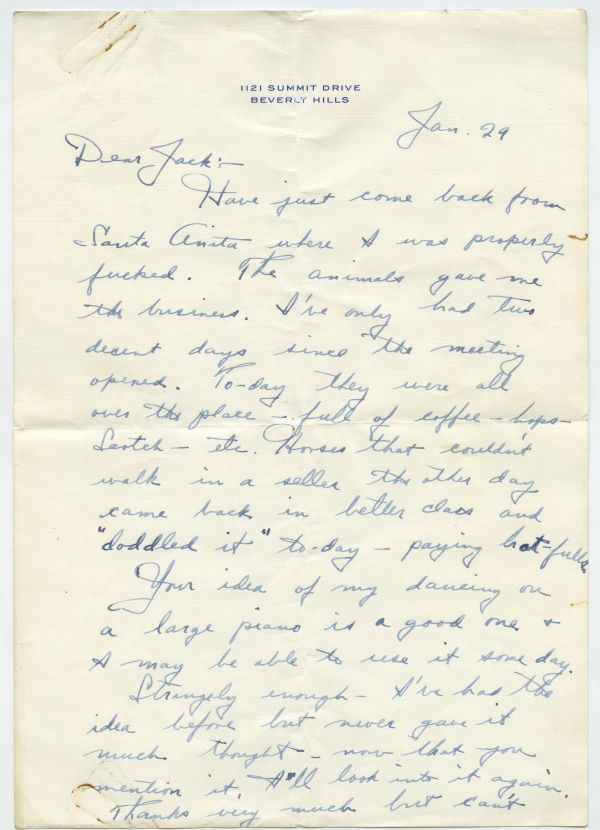 1121 SUMMIT DRIVE
BEVERLY HILLS
Jan. 29
Dear Jack:-
Have just come back from
Santa Anita where I was properly
fucked. The animals gave me
the business. I've only had two
decent days since the meeting
opened. To-day they were all
over the place - full of coffee - hops -
Scotch - etc. Horses that couldn't
walk in a seller the other day
came back in better class and
"doddled it" to-day - paying hat-fulls.
Your idea of my dancing on
a large piano is a good one &
I may be able to use it some day.
Strangely enough - I've had the
idea before but never gave it
much thought - now that you
mention it, I'll look into it again.
Thanks very much but can't